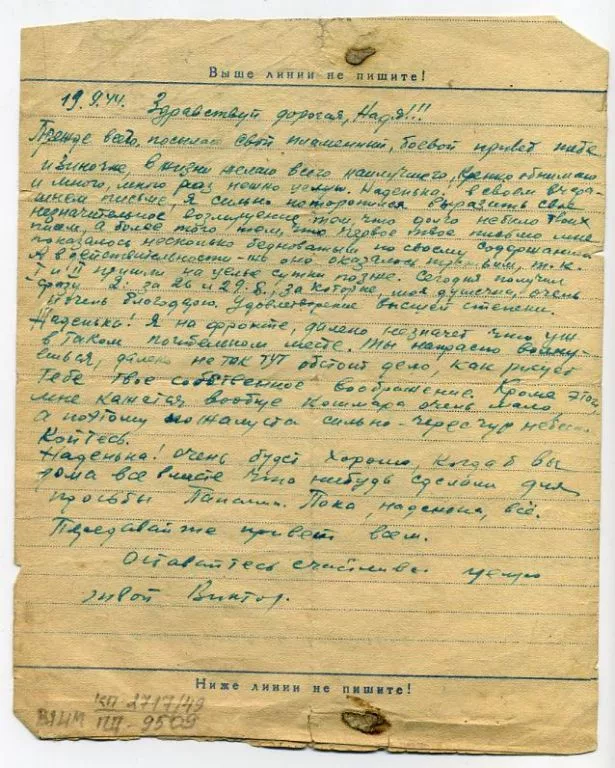 Выше линии не пишите!
19.9.44. Здравствуй дорогая, Надя!!!
Прежде всего, посылаю свой пламенный, боевой привет тебе
и Зиночке, в жизни желаю всего наилучшего, крепко обнимаю
и много, много раз нежно целую. Наденька! в своем вчера-
шнем письме, я сильно поторопился выразить своё
незначительное возмущение тем, что долго небыло твоих
писем, а более того тем, что первое твое письмо мне
показалось несколько бедноватым по своему содержанию
А в действительности-то оно оказалось третьим, т.к.
I и II пришли на целые сутки позже. Сегодня получил
сразу 2. за 26 и 29.8! за которые, моя душечка, очень
и очень благодарю. Удовлетворение высшей степени.
Наденька! Я на фронте, далеко незначет что уж
в таком почительном месте. Ты напрасно волну-
ешься, далеко не так тут обстоит дело, как рисует
Тебе твое собственное воображение. Кроме этого,
мне кажется вообще кошмара очень мало,
а поэтому пожалуста сильно-чересчур небес-
койтесь.
Наденька! Очень будет хорошо, когда б вы
дома все вместе что нибудь сделали для
просьбы Пока, наденька, всё.
Передавай же привет всем.
Оставайтесь счастливы целую
живой Виктор.
Ниже линии не пишите!
КП 2717/49
ПД-9509